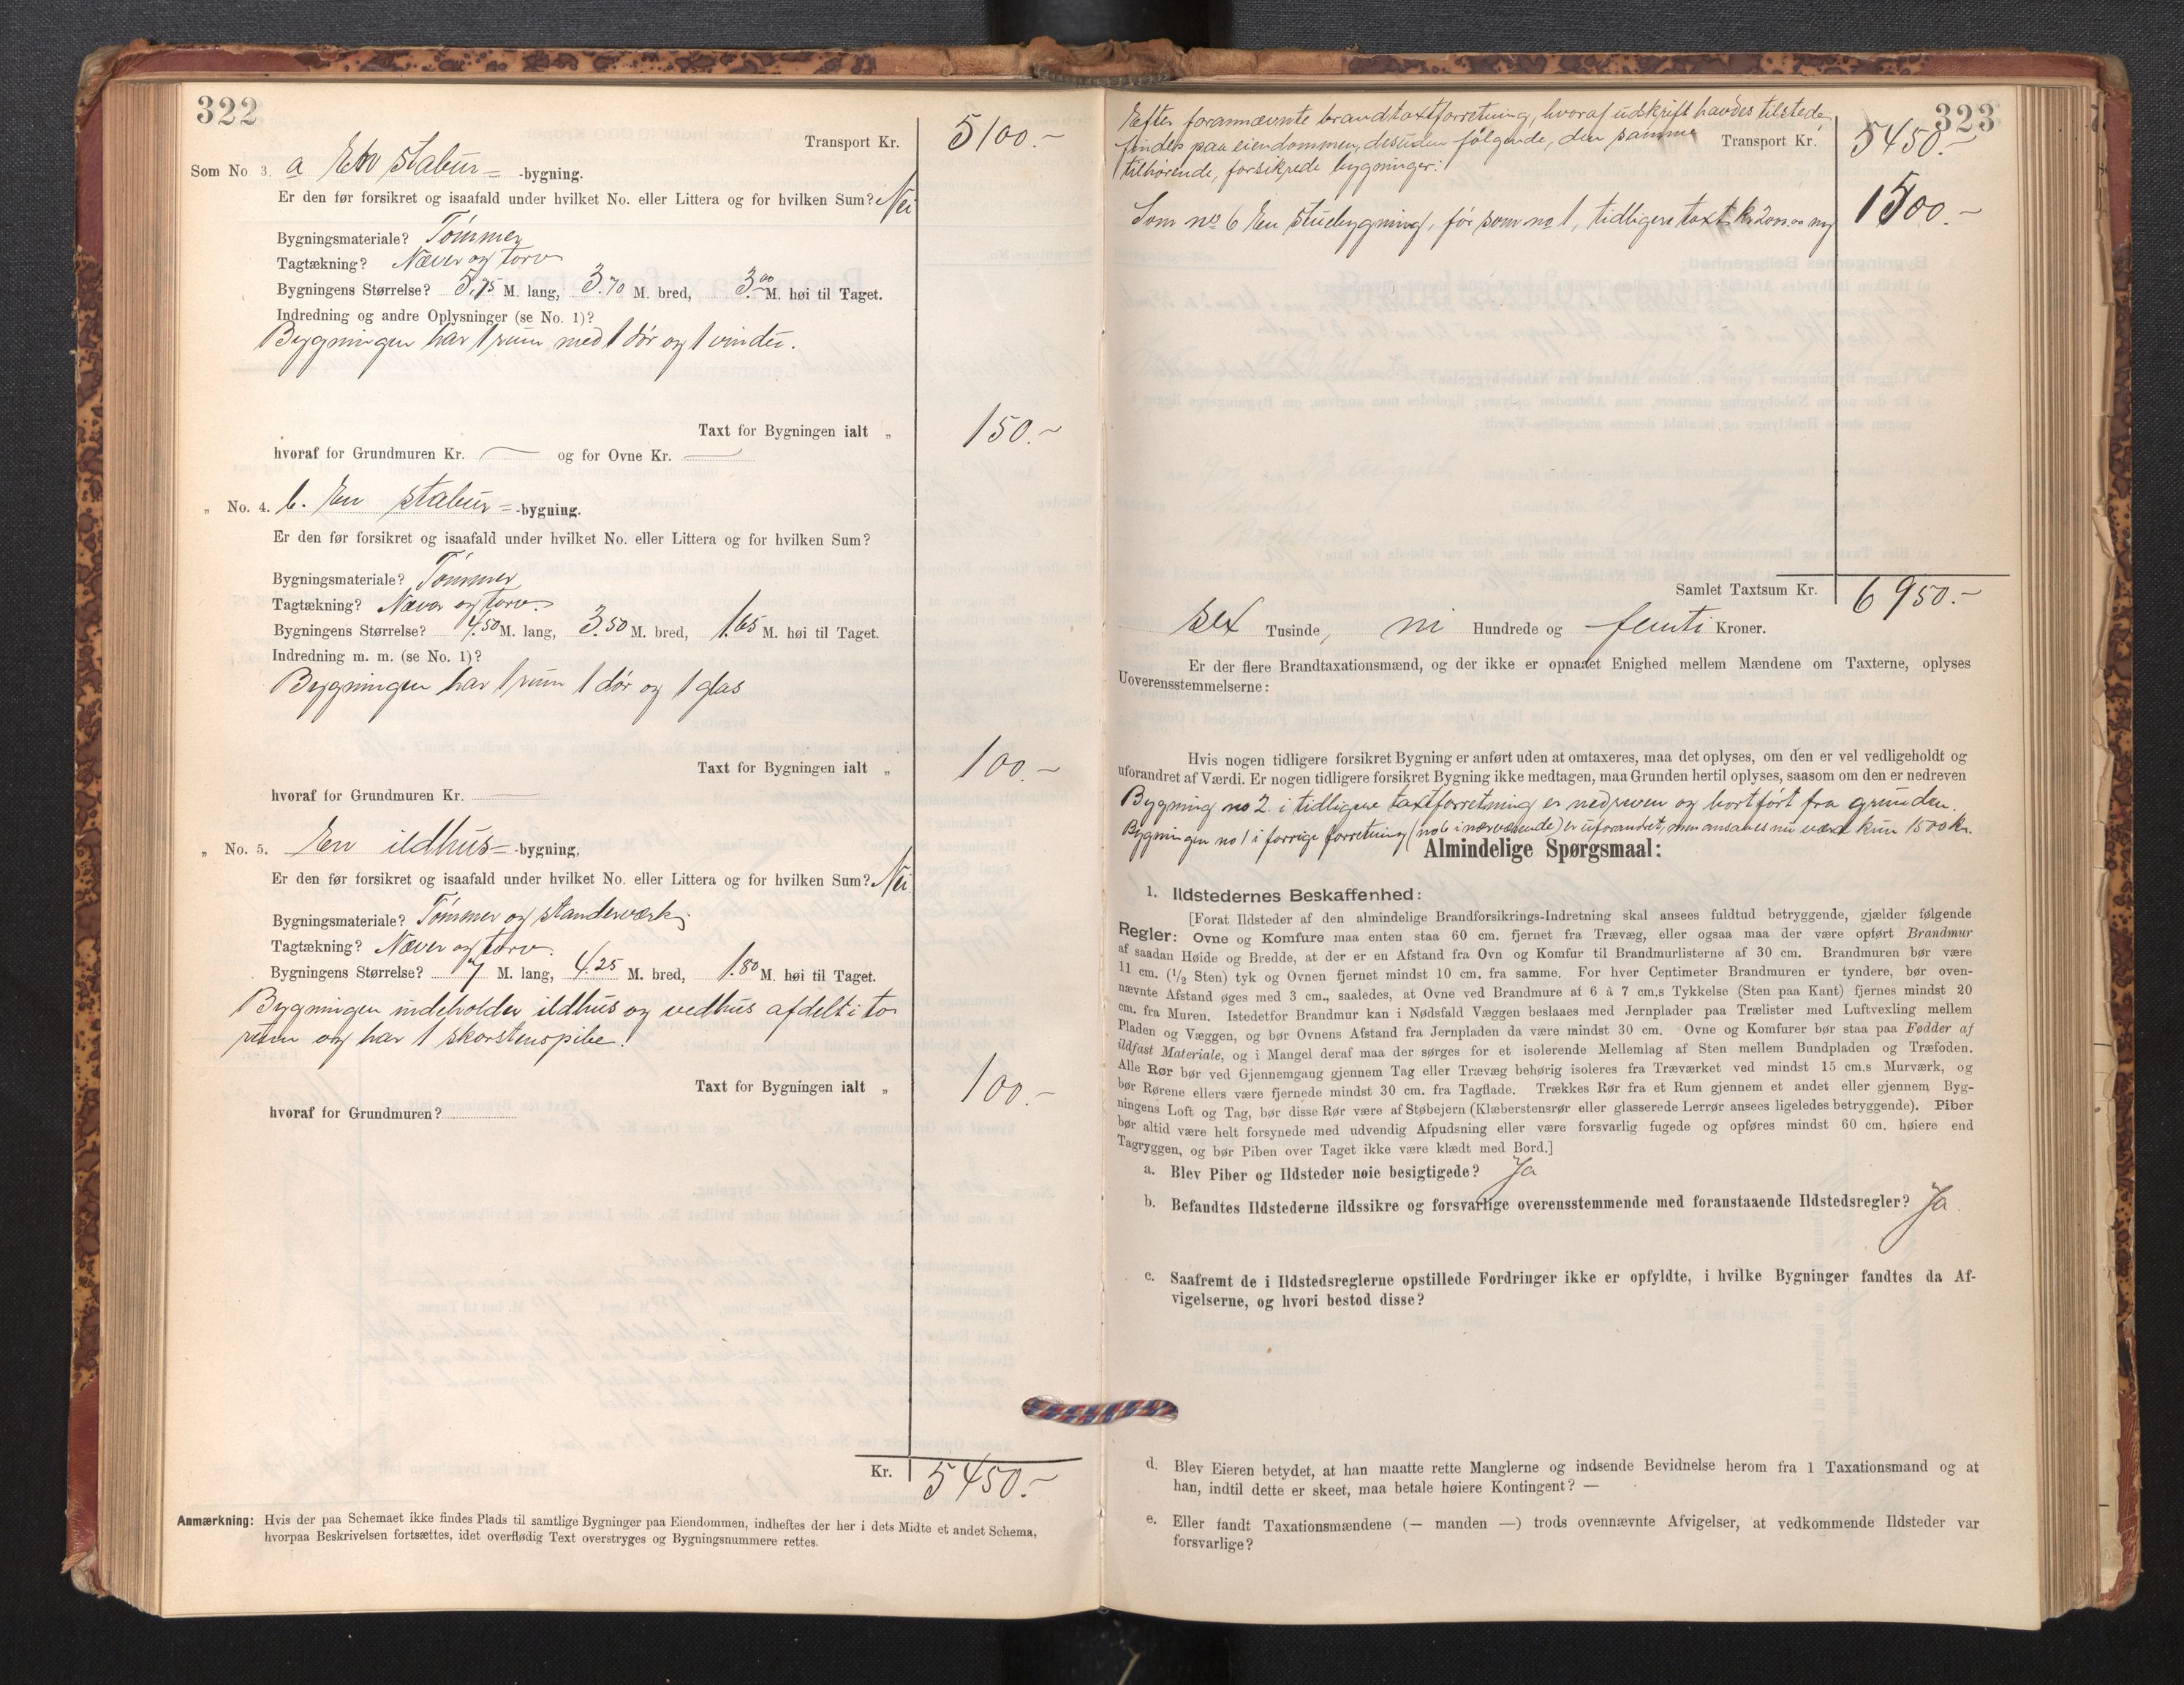 322
Transport Kr. 5100.-
Som No 3. a En stabur= -bygning.
Er den før forsikret og isaafald under hvilket No. eller Littera og for hvilken Sum? Nei
Bygningsmateriale? Tømmer
Tagtækning? Næver og torv
Bygningens Størrelse? 5.75 M. lang, 3.70 M. bred, 3.00 M. høi til Taget.
Indredning og andre Oplysninger (se No. 1)?
Bygningen har 1 rum med 1 dør og 1 vindu.
Taxt for Bygningen ialt „ 150.-
hvoraf for Grundmuren Kr. — og for Ovne Kr. —
„ No. 4. b. En stabur= -bygning.
Er den før forsikret og isaafald under hvilket No. eller Littera og for hvilken Sum?
Bygningsmateriale? Tømmer
Tagtækning? Næver og torv.
Bygningens Størrelse? 4.50 M. lang, 3.50 M. bred, 1.65 M. høi til Taget.
Indredning m. m. (se No. 1)?
Bygningen har 1 rum 1 dør og 1 glas
Taxt for Bygningen ialt „ 100.-
hvoraf for Grundmuren Kr. —
„ No. 5. En ildhus= -bygning,
Er den før forsikret og isaafald under hvilket No. eller Littera og for hvilken Sum? Nei
Bygningsmateriale? Tømmer og standerværk
Tagtækning? Næver og torv.
Bygningens Størrelse? 7 M. lang, 4.25 M. bred, 1.80 M. høi til Taget.
Bygningen indeholder ildhus og vedhus afdelt i to
rum og har 1 skorstenspibe.
Taxt for Bygningen ialt „ 100.-
hvoraf for Grundmuren?
Kr. 5450.-
Anmærkning: Hvis der paa Schemaet ikke findes Plads til samtlige Bygninger paa Eiendommen, indheftes der her i dets Midte et andet Schema,
hvorpaa Beskrivelsen fortsættes, idet overflødig Text overstryges og Bygningsnummere rettes.
323
Efter forannævnte brandtaxtforretning, hvoraf udskrift havdes tilstede,
findes paa eiendommen, desuden følgende, den samme
Transport Kr. 5450.-
tilhørende, forsikrede bygninger:
Som no 6 En stuebygning, før som no 1, tidligere taxt kr 2000.00 ny 1500.-
Samlet Taxtsum Kr. 6950.-
sex Tusinde, ni Hundrede og femti Kroner.
Er der flere Brandtaxationsmænd, og der ikke er opnaaet Enighed mellem Mændene om Taxterne, oplyses
Uoverensstemmelserne:
Hvis nogen tidligere forsikret Bygning er anført uden at omtaxeres, maa det oplyses, om den er vel vedligeholdt og
uforandret af Værdi. Er nogen tidligere forsikret Bygning ikke medtagen, maa Grunden hertil oplyses, saasom om den er nedreven
Bygning no 2. i tidligere taxtforretning er nedreven og bortført fra grunden.
Bygningen no 1 i forrige forretning (no 6 i nærværende) er uforandret, men ansaaes nu værd kun 1500 kr.
Almindelige Spørgsmaal:
1. Ildstedernes Beskaffenhed:
[Forat Ildsteder af den almindelige Brandforsikrings-Indretning skal ansees fuldtud betryggende, gjælder følgende
Regler: Ovne og Komfure maa enten staa 60 cm. fjernet fra Trævæg, eller ogsaa maa der være opført Brandmur
af saadan Høide og Bredde, at der er en Afstand fra Ovn og Komfur til Brandmurlisterne af 30 cm. Brandmuren bør være
11 cm. (1/2 Sten) tyk og Ovnen fjernet mindst 10 cm. fra samme. For hver Centimeter Brandmuren er tyndere, bør oven-
nævnte Afstand øges med 3 cm., saaledes, at Ovne ved Brandmure af 6 à 7 cm.s Tykkelse (Sten paa Kant) fjernes mindst 20
cm. fra Muren. Istedetfor Brandmur kan i Nødsfald Væggen beslaaes med Jernplader paa Trælister med Luftvexling mellem
Pladen og Væggen, og bør Ovnens Afstand fra Jernpladen da være mindst 30 cm. Ovne og Komfurer bør staa paa Fødder af
ildfast Materiale, og i Mangel deraf maa der sørges for et isolerende Mellemlag af Sten mellem Bundpladen og Træfoden.
Alle Rør bør ved Gjennemgang gjennem Tag eller Trævæg behørig isoleres fra Træværket ved mindst 15 cm.s Murværk, og
bør Rørene ellers være fjernede mindst 30 cm. fra Tagflade. Trækkes Rør fra et Rum gjennem et andet eller gjennem Byg-
ningens Loft og Tag, bør disse Rør være af Støbejern (Klæberstensrør eller glasserede Lerrør ansees ligeledes betryggende). Piber
bør altid være helt forsynede med udvendig Afpudsning eller være forsvarlig fugede og opføres mindst 60 cm. høiere end
Tagryggen, og bør Piben over Taget ikke være klædt med Bord.]
a. Blev Piber og Ildsteder nøie besigtigede? Ja
b. Befandtes Ildstederne ildssikre og forsvarlige overensstemmende med foranstaaende Ildstedsregler? Ja.
c. Saafremt de i Ildstedsreglerne opstillede Fordringer ikke er opfyldte, i hvilke Bygninger fandtes da Af-
vigelserne, og hvori bestod disse?
d. Blev Eieren betydet, at han maatte rette Manglerne og indsende Bevidnelse herom fra 1 Taxationsmand og at
han, indtil dette er skeet, maa betale høiere Kontingent? —
e. Eller fandt Taxationsmændene (— manden —) trods ovennævnte Afvigelser, at vedkommende Ildsteder var
forsvarlige?